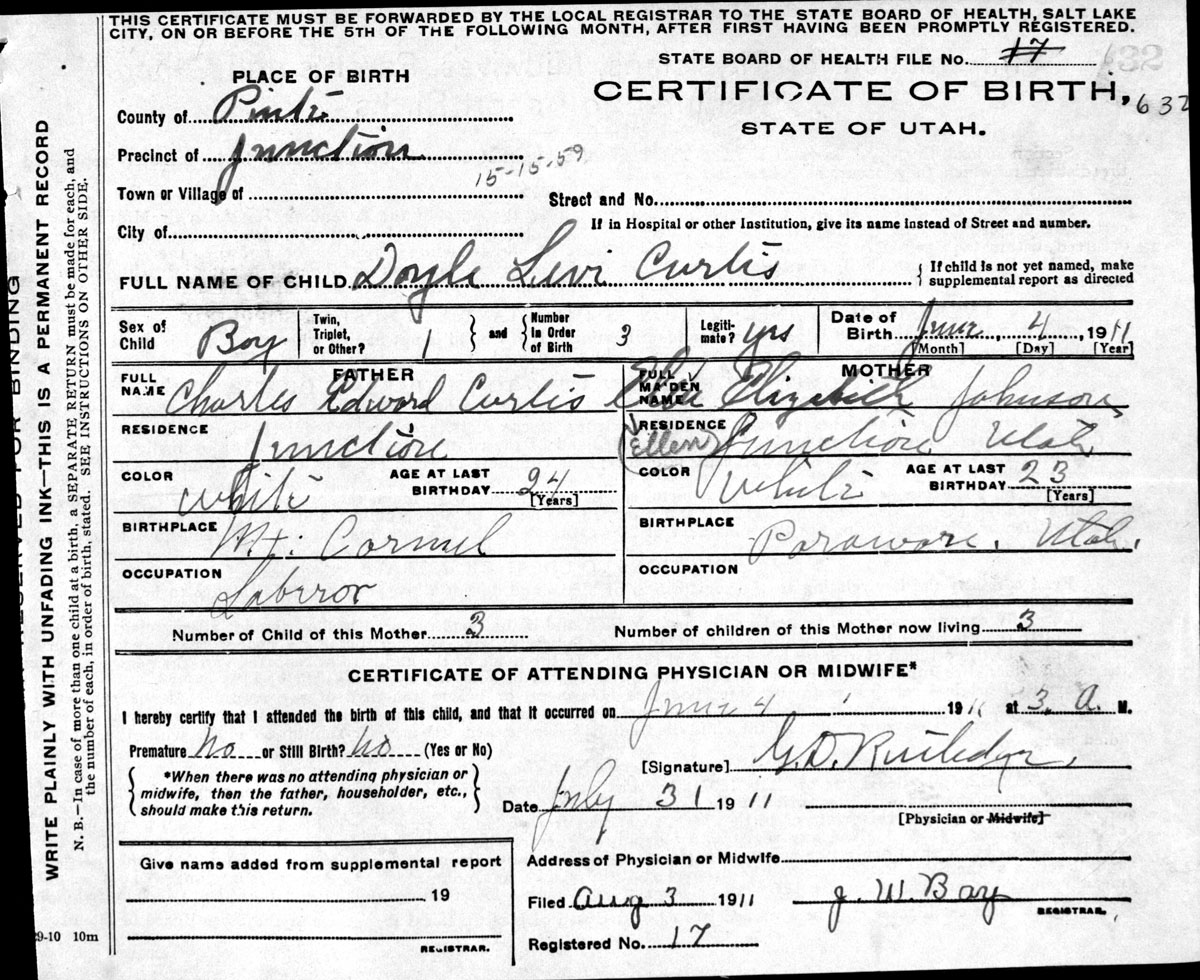 THIS CERTIFICATE MUST BE FORWARDED BY THE LOCAL REGISTRAR TO THE STATE BOARD OF HEALTH, SALT LAKE
CITY, ON OR BEFORE THE 5TH OF THE FOLLOWING MONTH, AFTER FIRST HAVING BEEN PROMPTLY REGISTERED.
STATE BOARD OF HEALTH FILE No. 17
PLACE OF BIRTH
CERTIFICATE OF BIRTH, 632
STATE OF UTAH.
County of Piute
Precinct of Junction
15-15-59
Town or Village of
Street and No.
City of
If in Hospital or other Institution, give its name instead of Street and number.
FULL NAME OF CHILD Doyle Levi Curtis
If child is not yet named, make
supplemental report as directed
Sex of Child Boy
Twin, Triplet, or Other? 1
and Number in Order of Birth 3
Legiti-mate? yes
Date of Birth June 4, 1911
[Month] [Day] [Year]
FATHER
FULL NAME Charles Edward Curtis
RESIDENCE Junction
COLOR White
AGE AT LAST BIRTHDAY 24
[Years]
BIRTHPLACE Mt. Carmel
OCCUPATION Laborror
MOTHER
FULL MAIDEN NAME Elizabeth Johnson
Ellen
RESIDENCE Junction Utah
COLOR White
AGE AT LAST BIRTHDAY 23
[Years]
BIRTHPLACE Parawan, Utah.
OCCUPATION
Number of Child of this Mother 3
Number of children of this Mother now living 3
CERTIFICATE OF ATTENDING PHYSICIAN OR MIDWIFE*
I hereby certify that I attended the birth of this child, and that it occurred on June 4 1911 at 3. a. M.
Premature No or Still Birth? No (Yes or No)
[Signature] G.D. Rutledge.
*When there was no attending physician or
midwife, then the father, householder, etc.,
should make this return.
Date July 31 1911
[Physician or Midwife]
Give name added from supplemental report
19
REGISTRAR.
Address of Physician or Midwife
Filed Aug 3 1911
J. W. Bay
REGISTRAR.
Registered No. 17
29-10 10m
RESERVED FOR BINDING
WRITE PLAINLY WITH UNFADING INK—THIS IS A PERMANENT RECORD
N. B.—In case of more than one child at a birth, a SEPARATE RETURN must be made for each, and
the number of each, in order of birth, stated. SEE INSTRUCTIONS ON OTHER SIDE.